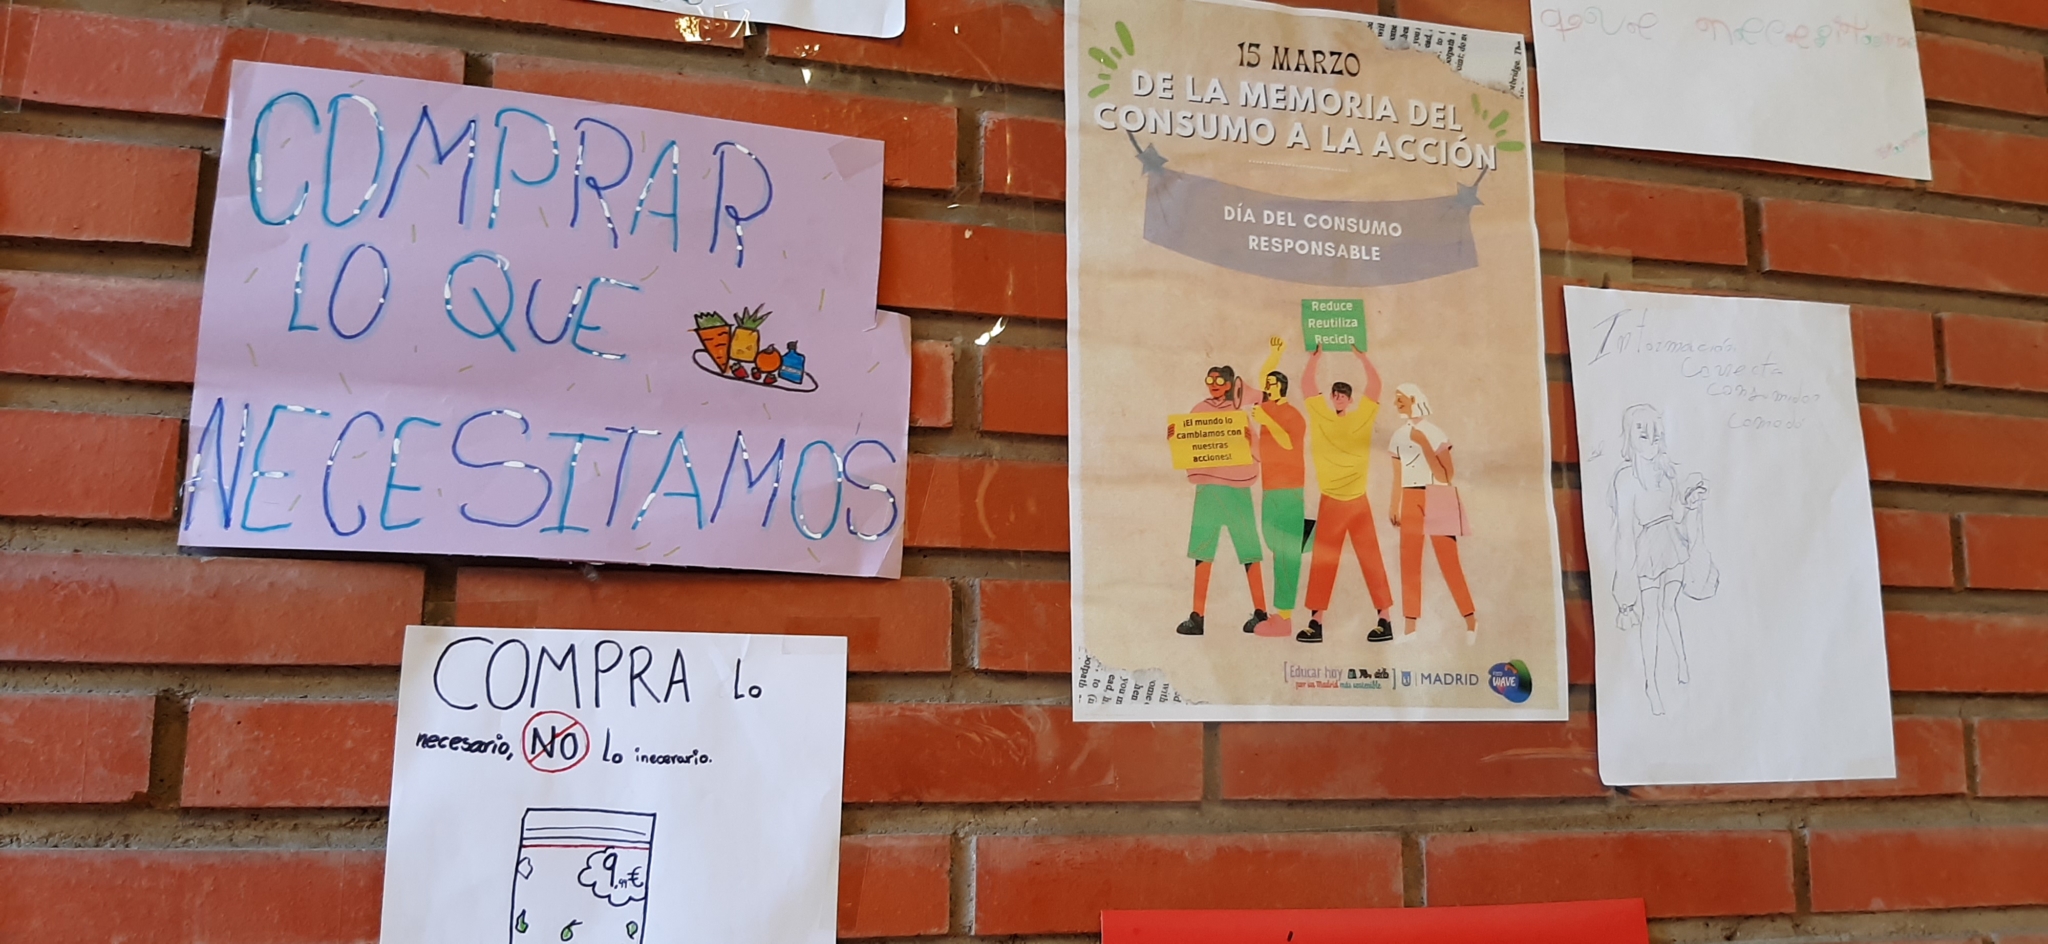 COMPRAR
LO QUE
NECESITAMOS
COMPRA lo
necesario, NO lo inecesario.
9,99€
15 MARZO
DE LA MEMORIA DEL
CONSUMO A LA ACCIÓN
DÍA DEL CONSUMO
RESPONSABLE
Reduce
Reutiliza
Recicla
¡El mundo lo
cambiamos con
nuestras
acciones!
[Educar hoy]
por un Madrid más sostenible
MADRID
WAVE
Información
correcta
consumidor